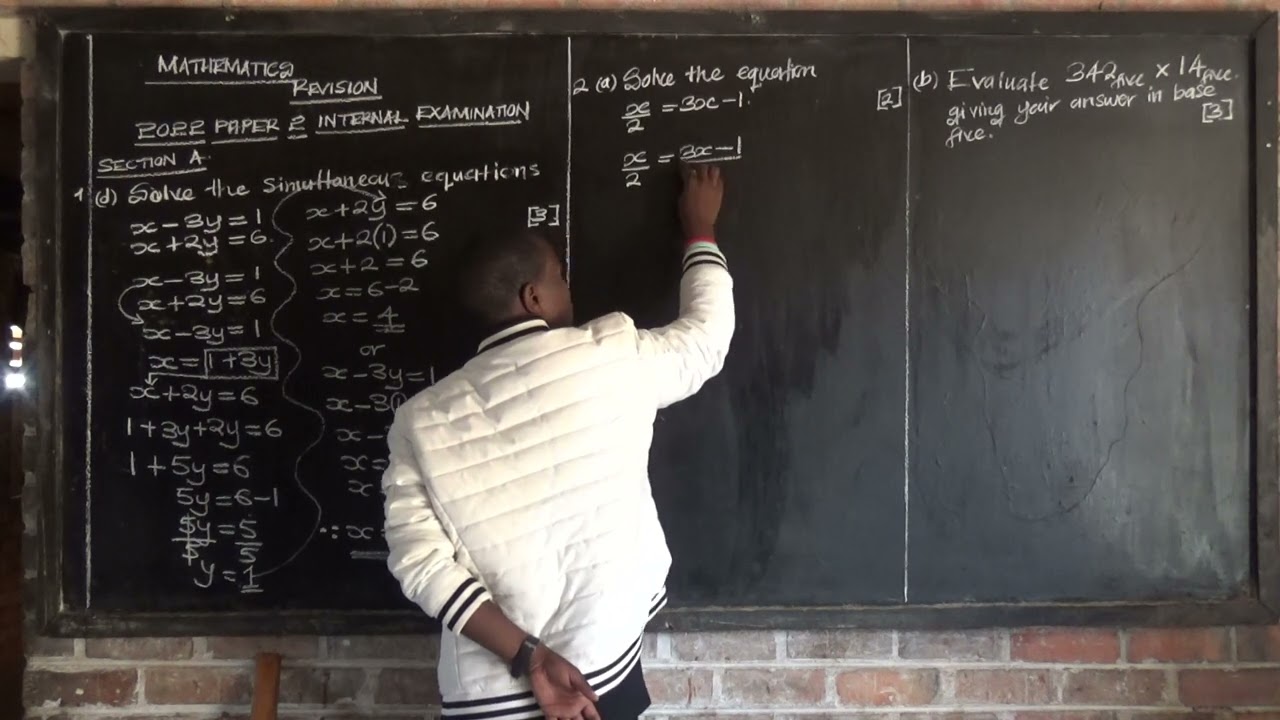 MATHEMATICS
REVISION
2022 PAPER 2 INTERNAL EXAMINATION
SECTION A
1 (d) Solve the simultaneous equations
[3]
x - 3y = 1
x + 2y = 6
x - 3y = 1
x + 2y = 6
x - 3y = 1
x = 1 + 3y
x + 2y = 6
1 + 3y + 2y = 6
1 + 5y = 6
5y = 6 - 1
5y/5 = 5/5
y = 1
x + 2y = 6
x + 2(1) = 6
x + 2 = 6
x = 6 - 2
x = 4
or
x - 3y = 1
x - 3(
x -
x =
x
∴ x =
2 (a) Solve the equation
x/2 = 3x - 1.
[2]
x/2 = 3x - 1
(b) Evaluate 342five × 14five.
giving your answer in base
five.
[3]